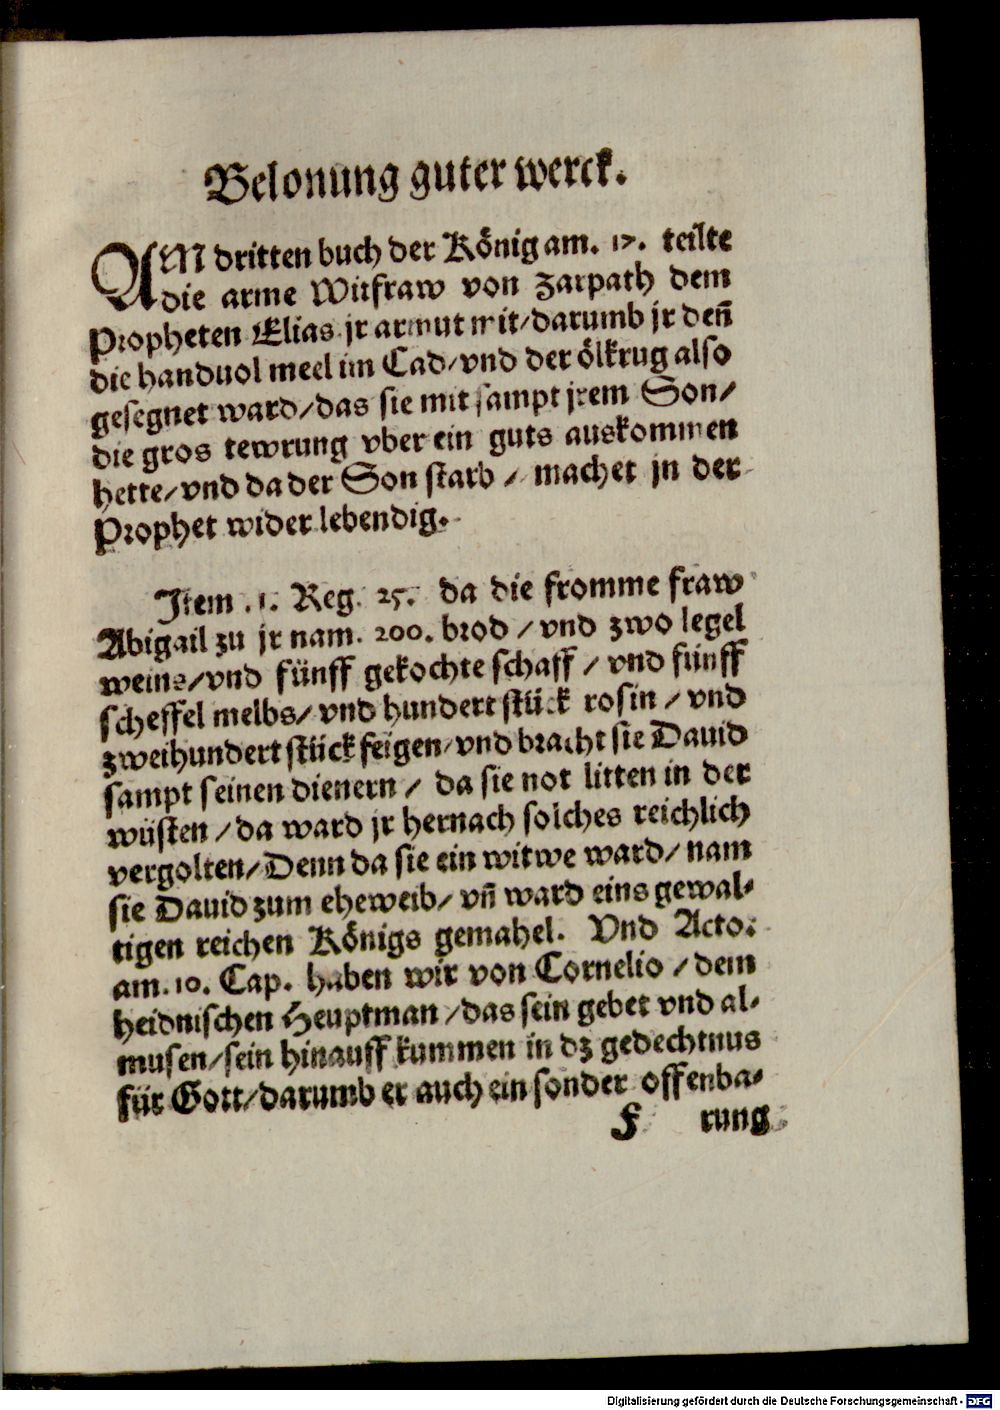 Belonung guter werck.
AM dritten buch der König am. 17. teilte
die arme Witfraw von Zarpath dem
Propheten Elias jr armut mit/darumb jr deñ
die handuol meel im Cad/vnd der ölkrug also
gesegnet ward/das sie mit sampt jrem Son/
die gros tewrung vber ein guts auskommen
hette/vnd da der Son starb / machet jn der
Prophet wider lebendig.
Item .1. Reg. 25. da die fromme fraw
Abigail zu jr nam. 200. brod / vnd zwo legel
weins/vnd fünff gekochte schaff / vnd fünff
scheffel melbs/vnd hundert stück rosin / vnd
zweihundert stück feigen/vnd bracht sie Dauid
sampt seinen dienern / da sie not litten in der
wüsten / da ward jr hernach solches reichlich
vergolten/Denn da sie ein witwe ward/nam
sie Dauid zum eheweib/ vñ ward eins gewal-
tigen reichen Königs gemahel. Vnd Acto.
am. 10. Cap. haben wir von Cornelio / dem
heidnischen Heuptman /das sein gebet vnd al-
musen/sein hinauff kummen in dz gedechtnus
für Gott/darumb er auch ein sonder offenba-
F rung
Digitalisierung gefördert durch die Deutsche Forschungsgemeinschaft - DFG